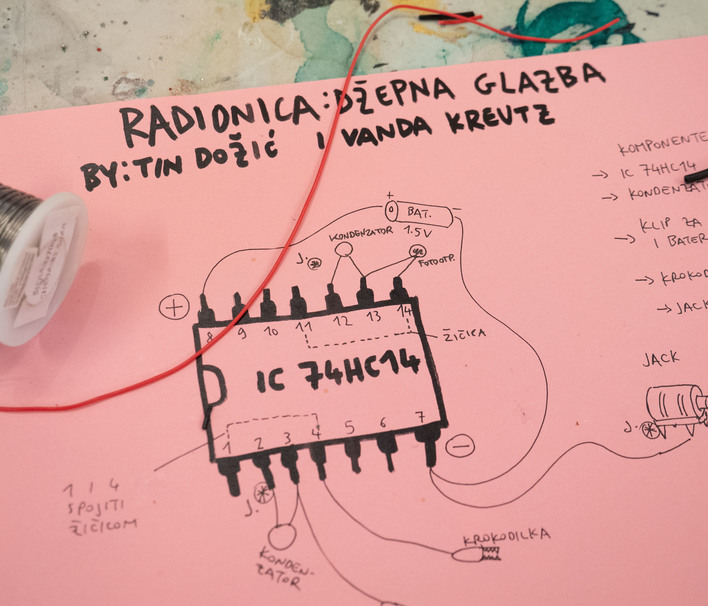 RADIONICA: DŽEPNA GLAZBA
BY: TIN DOŽIĆ I VANDA KREUTZ
KOMPONENTE
→ IC 74HC14
→ KONDENZAT
→ KLIP ZA
I BATER
→ KROKOD
→ JACK
JACK
J.
+ BAT. -
1.5V
KONDENZATOR
J.
FOTOOTP.
+
8 9 10 11 12 13 14
ŽIČICA
IC 74HC14
1 2 3 4 5 6 7
-
1 I 4
SPOJITI
ŽIČICOM
J.
KONDEN-
ZATOR
KROKODILKA